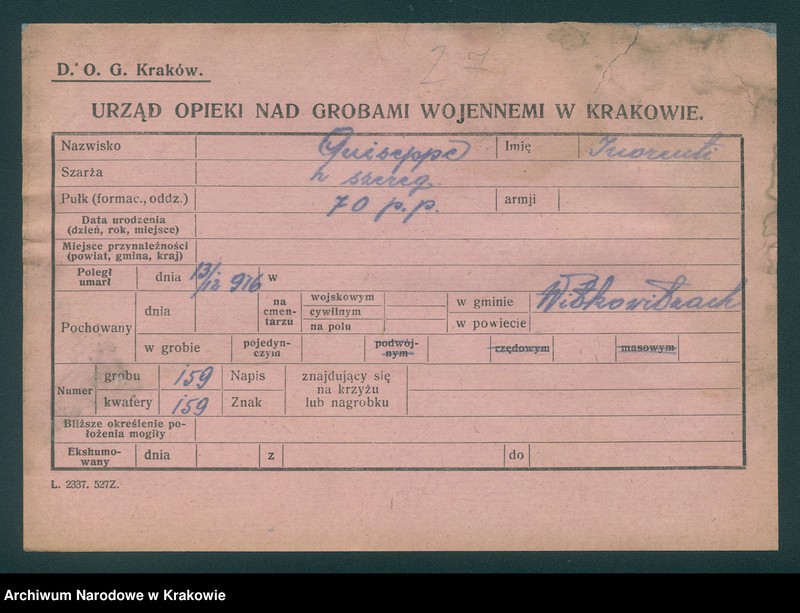 27
D. O. G. Kraków.
URZĄD OPIEKI NAD GROBAMI WOJENNEMI W KRAKOWIE.
Nazwisko Guiseppe Imię
Szarża szereg.
Pułk (formac., oddz.) 70 p.p. armji
Data urodzenia
(dzień, rok, miejsce)
Miejsce przynależności
(powiat, gmina, kraj)
Poległ
umarł dnia 13/12 916 w
Pochowany
dnia
na
cmen-
tarzu
wojskowym
cywilnym
na polu
w gminie Witkowitzach
w powiecie
w grobie pojedyn-
czym podwój-
nym rzędowym masowym
Numer
grobu 159 Napis
kwatery 159 Znak
znajdujący się
na krzyżu
lub nagrobku
Bliższe określenie po-
łożenia mogiły
Ekshumo-
wany dnia z do
L. 2337. 527Z.
Archiwum Narodowe w Krakowie